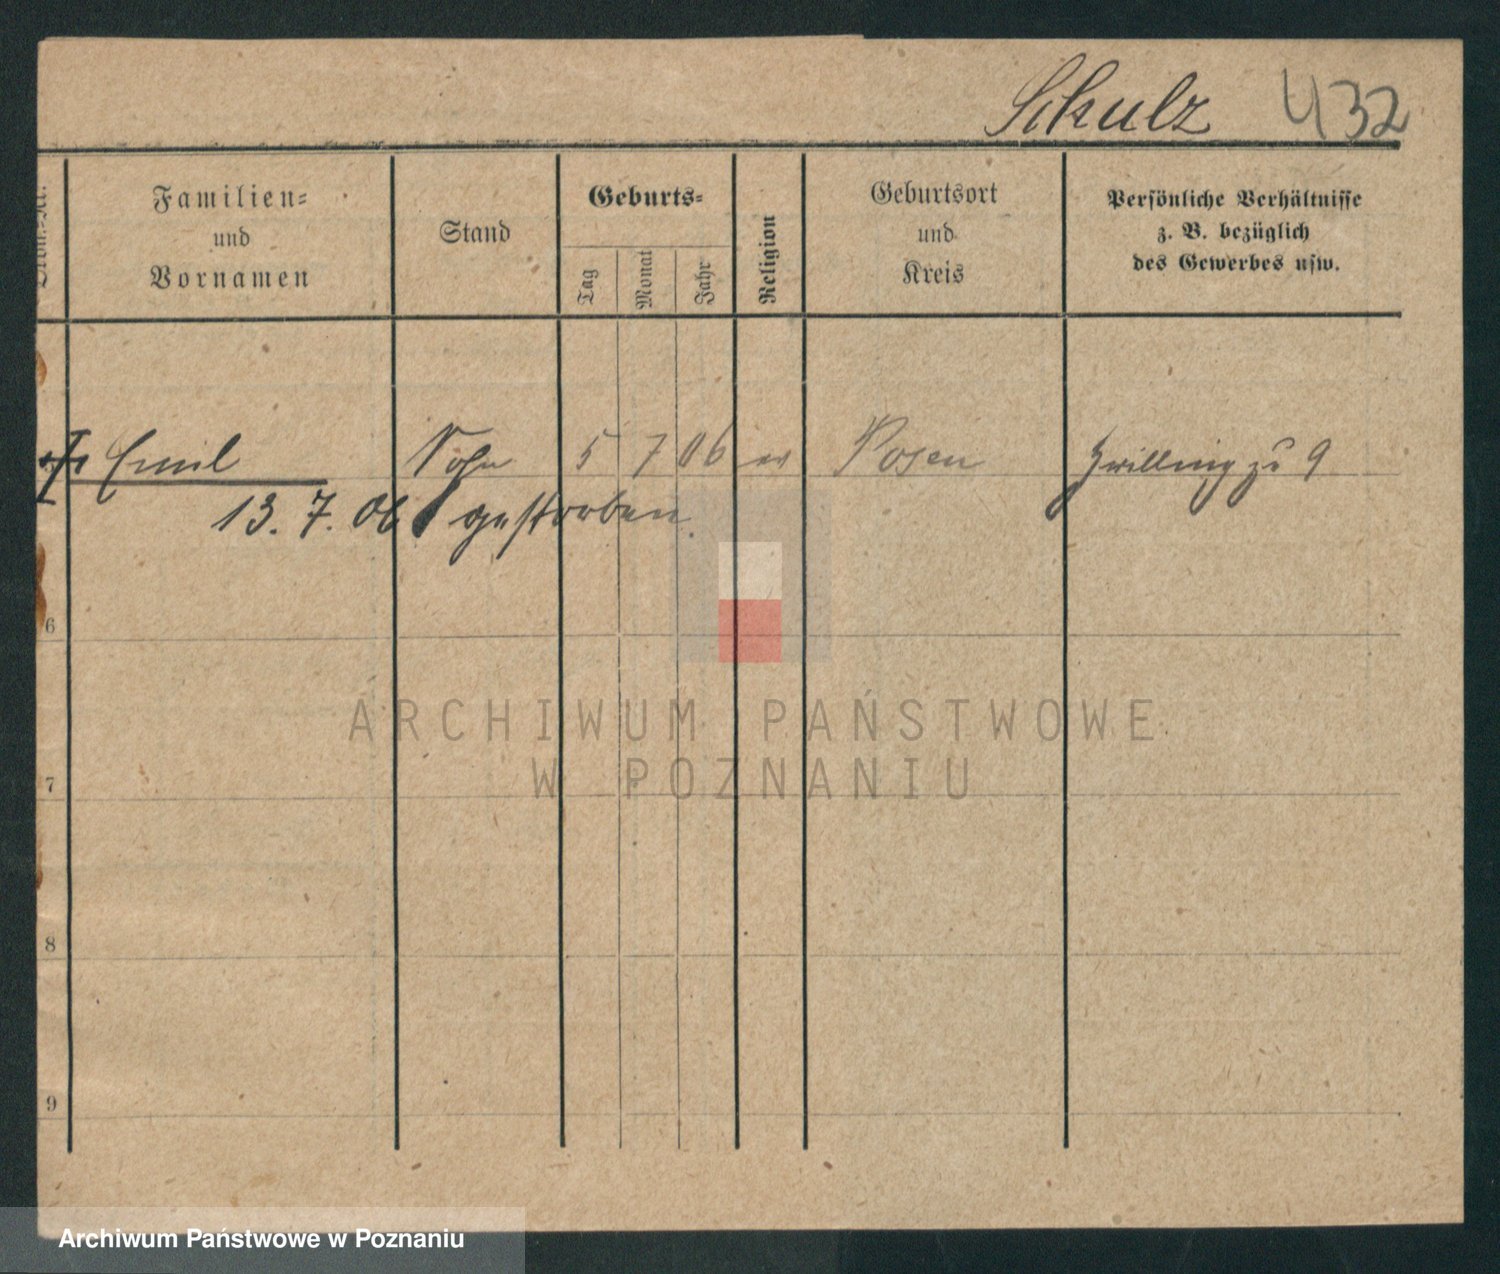 Schulz 432
Familien=
und
Vornamen
Stand
Geburts=
Tag
Monat
Jahr
Religion
Geburtsort
und
Kreis
Persönliche Verhältnisse
z. B. bezüglich
des Gewerbes usw.
Emil Sohn 5 7 06 ev Posen Zwilling zu 9
13. 7. 06 gestorben.
6
7
8
9
ARCHIWUM PAŃSTWOWE
W POZNANIU
Archiwum Państwowe w Poznaniu